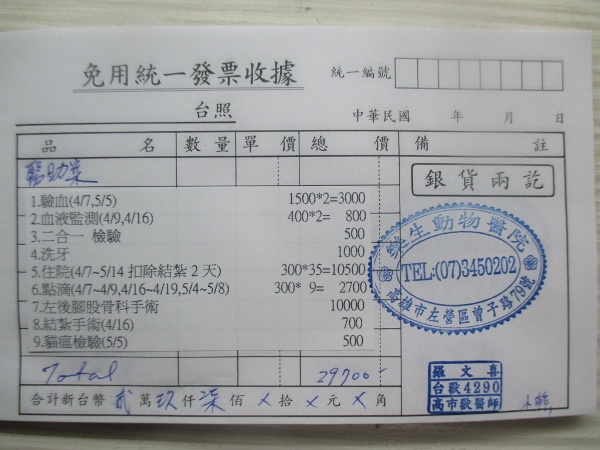 免用統一發票收據
統一編號
台照
中華民國 年 月 日
品 名 數 量 單 價 總 價 備 註
醫助案
銀貨兩訖
1.驗血(4/7,5/5) 1500*2=3000
2.血液監測(4/9,4/16) 400*2= 800
3.二合一 檢驗 500
4.洗牙 1000
5.住院(4/7~5/14 扣除結紮 2 天) 300*35=10500
6.點滴(4/7~4/9,4/16~4/19,5/4~5/8) 300* 9= 2700
7.左後腳股骨科手術 10000
8.結紮手術(4/16) 700
9.貓瘟檢驗(5/5) 500
生動物醫院
TEL:(07)3450202
高雄市左營區曾子路79號
Total 29700-
合計新台幣 貳 萬 玖 仟 柒 佰 X 拾 X 元 X 角
羅文喜
台獸4290
高市獸醫師